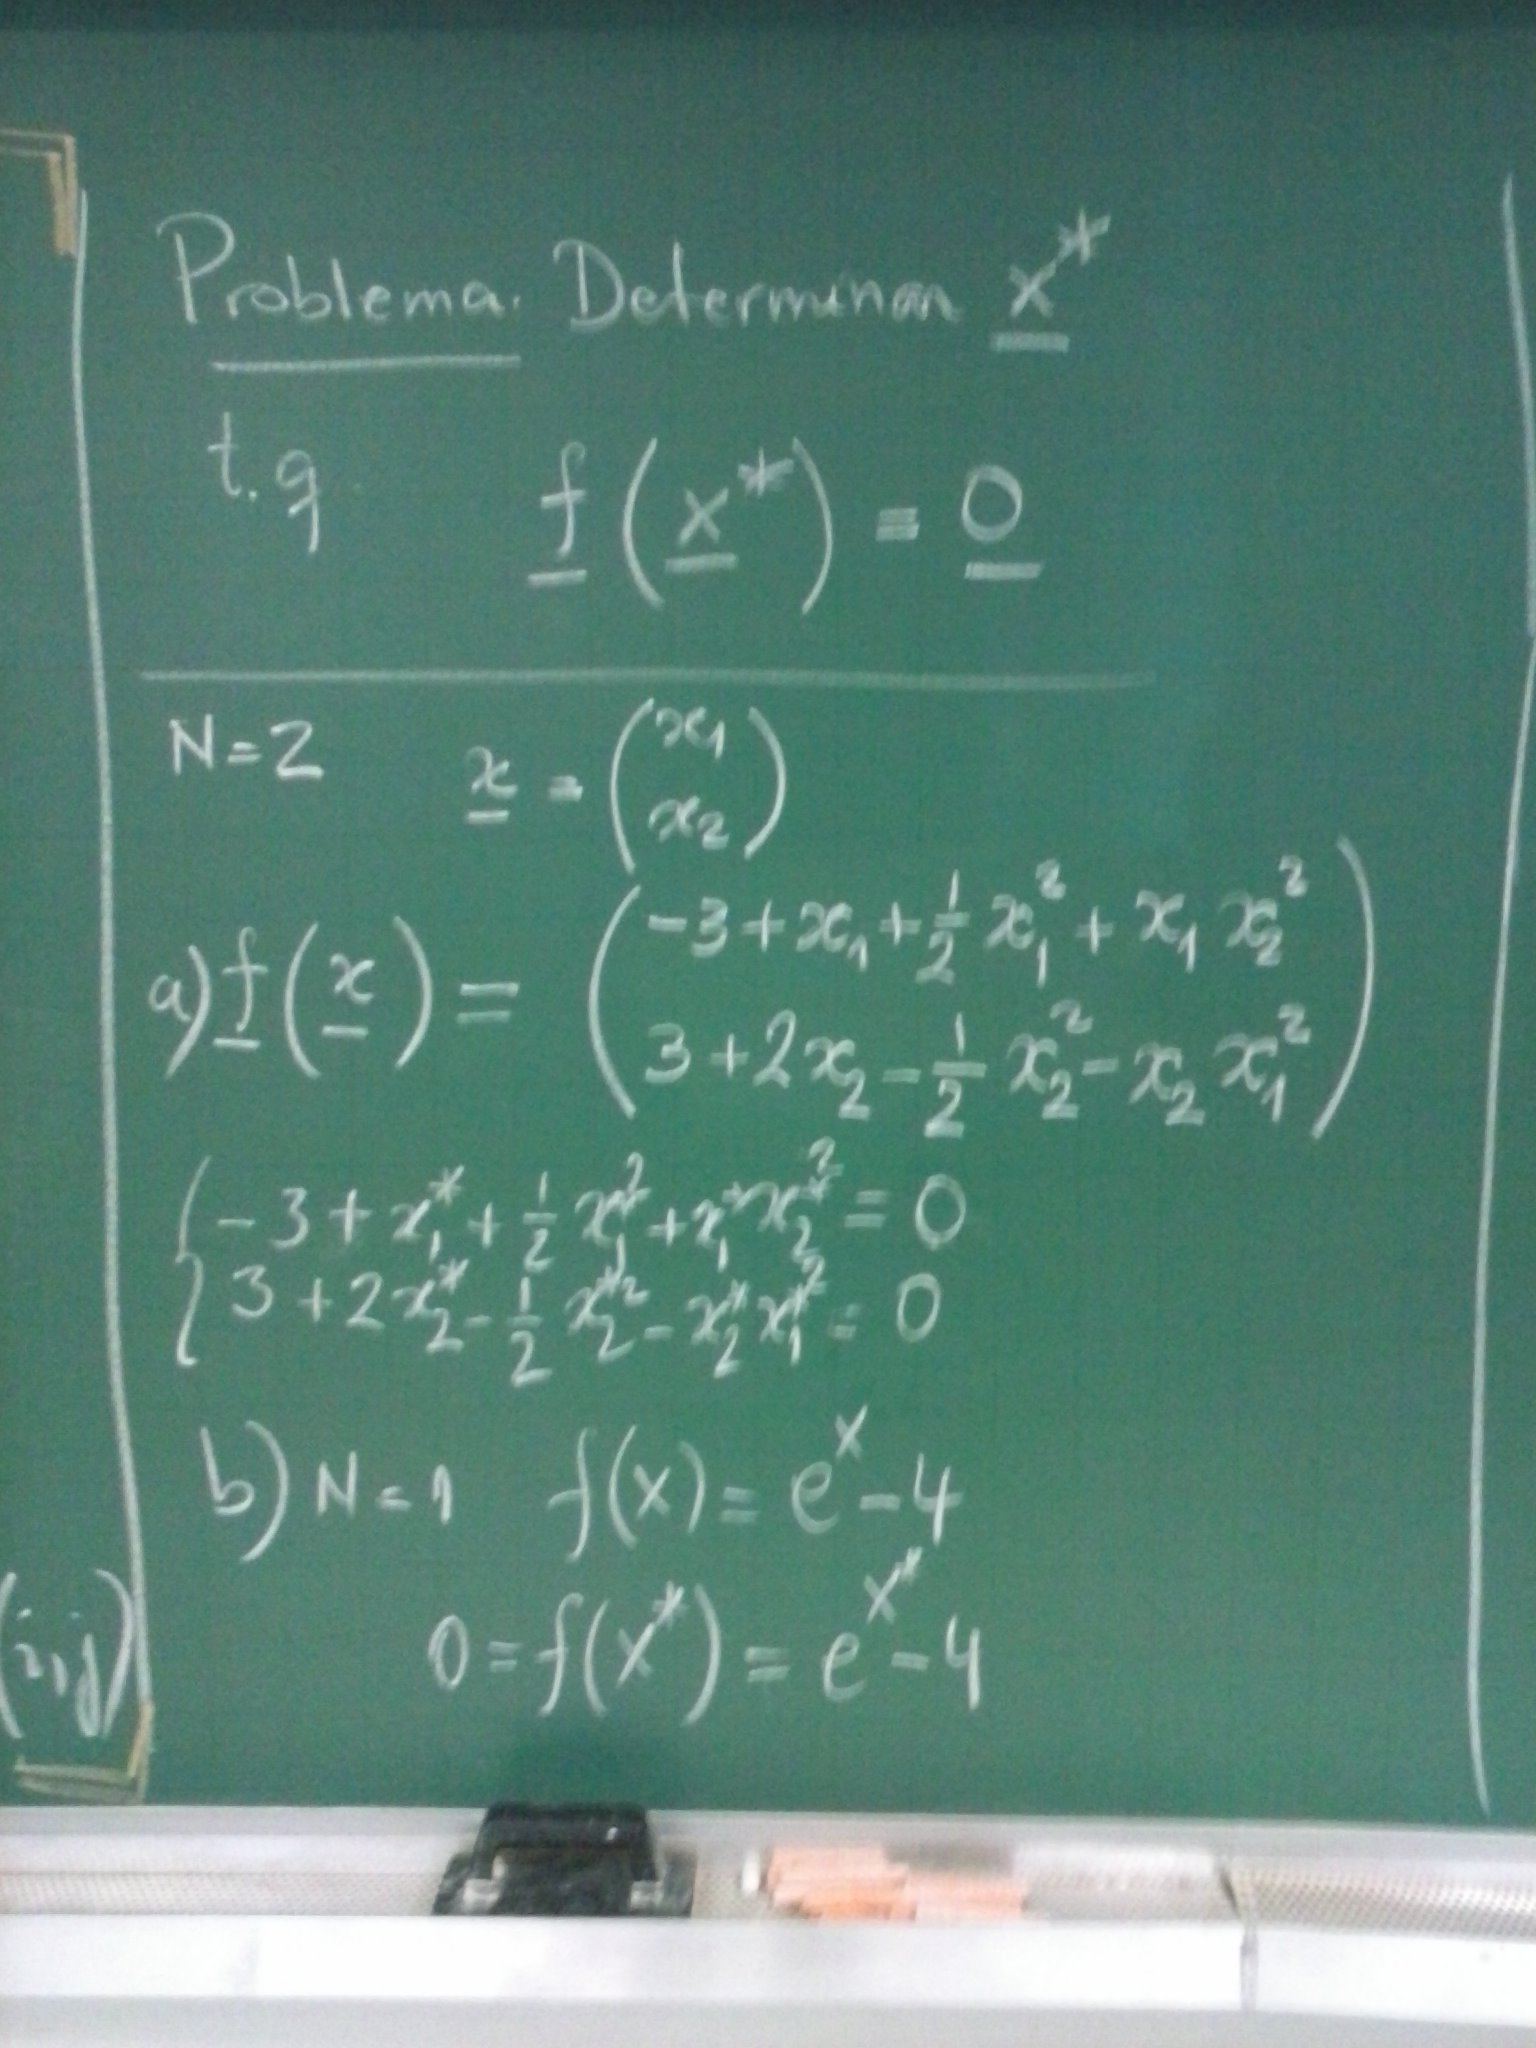 Problema. Determinar x*
t.q. f(x*) = 0
N=2 x = (x₁ x₂)
a) f(x) = (-3+x₁+½x₁²+x₁x₂²
3+2x₂-½x₂²-x₂x₁²)
{-3+x₁*+½x₁*²+x₁*x₂*²=0
3+2x₂*-½x₂*²-x₂*x₁*²=0
b) N=1 f(x)=eˣ-4
0=f(x*)=eˣ*-4
(i,j)